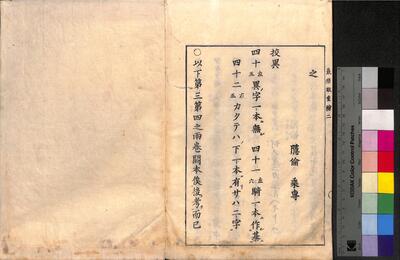 之
隱倫 乗專
校異
四十左五異字一本無 四十一左六騎一本作某
四十二右五カタテハノ下一本有サハ二字
〇以下第三第四之兩卷闕本俟後考而已
KODAK Color Control Patches